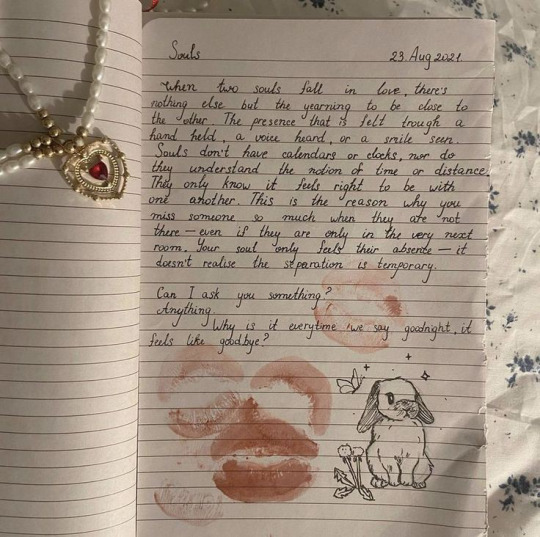 Souls 23 Aug 2021
When two souls fall in love, there's
nothing else but the yearning to be close to
the other. The presence that is felt trough a
hand held, a voice heard, or a smile seen.
Souls don't have calendars or clocks, nor do
they understand the notion of time or distance.
They only know it feels right to be with
one another. This is the reason why you
miss someone so much when they are not
there — even if they are only in the very next
room. Your soul only feels their absence — it
doesn't realise the separation is temporary.
Can I ask you something?
Anything.
Why is it everytime we say goodnight, it
feels like goodbye?